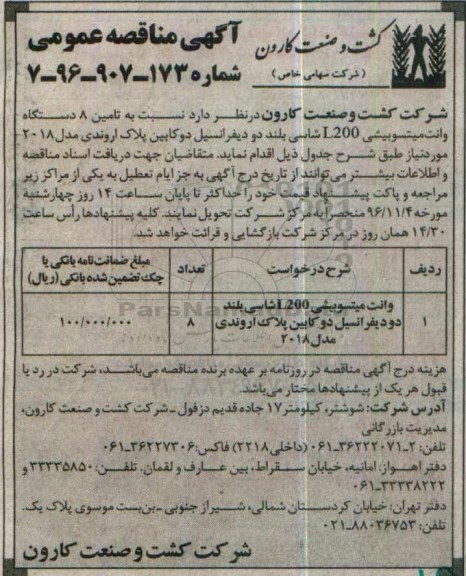 کشت و صنعت کارون
(شرکت سهامی خاص)
آگهی مناقصه عمومی
شماره ۱۷۳-۹۰۷-۹۶-۷
شرکت کشت و صنعت کارون در نظر دارد نسبت به تامین ۸ دستگاه
وانت میتسوبیشی L200 شاسی بلند دو دیفرانسیل دو کابین پلاک اروندی مدل ۲۰۱۸
موردنیاز طبق شرح جدول ذیل اقدام نماید. متقاضیان جهت دریافت اسناد مناقصه
و اطلاعات بیشتر می‌توانند از تاریخ درج آگهی به جز ایام تعطیل به یکی از مراکز زیر
مراجعه و پاکت پیشنهاد قیمت خود را حداکثر تا پایان ساعت ۱۴ روز چهارشنبه
مورخه ۹۶/۱۱/۴ منحصرا به مرکز شرکت تحویل نمایند. کلیه پیشنهادها رأس ساعت
۱۴/۳۰ همان روز در مرکز شرکت بازگشایی و قرائت خواهد شد.
ردیف شرح درخواست تعداد مبلغ ضمانت‌نامه بانکی یا چک تضمین شده بانکی (ریال)
۱ وانت میتسوبیشی L200 شاسی بلند دو دیفرانسیل دو کابین پلاک اروندی مدل ۲۰۱۸ ۸ ۱۰۰/۰۰۰/۰۰۰
هزینه درج آگهی مناقصه در روزنامه بر عهده برنده مناقصه می‌باشد، شرکت در رد یا
قبول هر یک از پیشنهادها مختار می‌باشد.
آدرس شرکت: شوشتر، کیلومتر ۱۷ جاده قدیم دزفول - شرکت کشت و صنعت کارون،
مدیریت بازرگانی
تلفن: ۲-۳۶۲۲۲۰۷۱-۰۶۱ (داخلی ۲۲۱۸) فاکس: ۳۶۲۲۷۳۰۶-۰۶۱
دفتر اهواز: امانیه، خیابان سقراط، بین عارف و لقمان. تلفن: ۳۳۳۳۵۸۵۰ و
۳۳۳۳۸۲۲۲-۰۶۱
دفتر تهران: خیابان کردستان شمالی، شیراز جنوبی - بن‌بست موسوی پلاک یک.
تلفن: ۸۸۰۳۶۷۵۳-۰۲۱
شرکت کشت و صنعت کارون